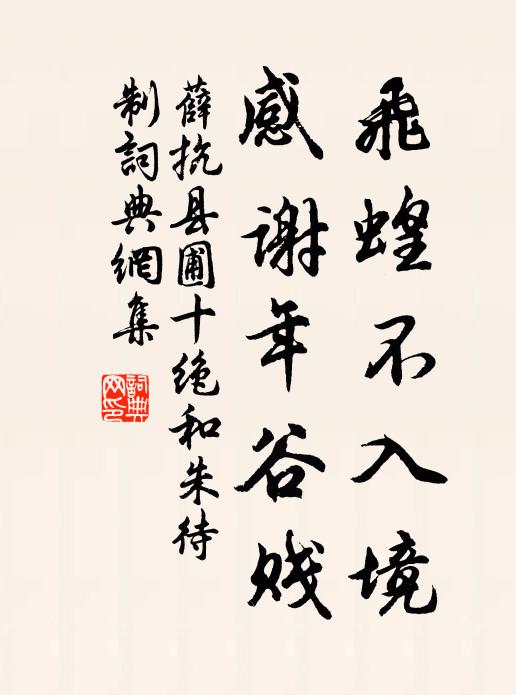 飛蝗不入境
感谢年谷贱
薛抗县圃十绝和朱待
制詞典網集
詞典
网印